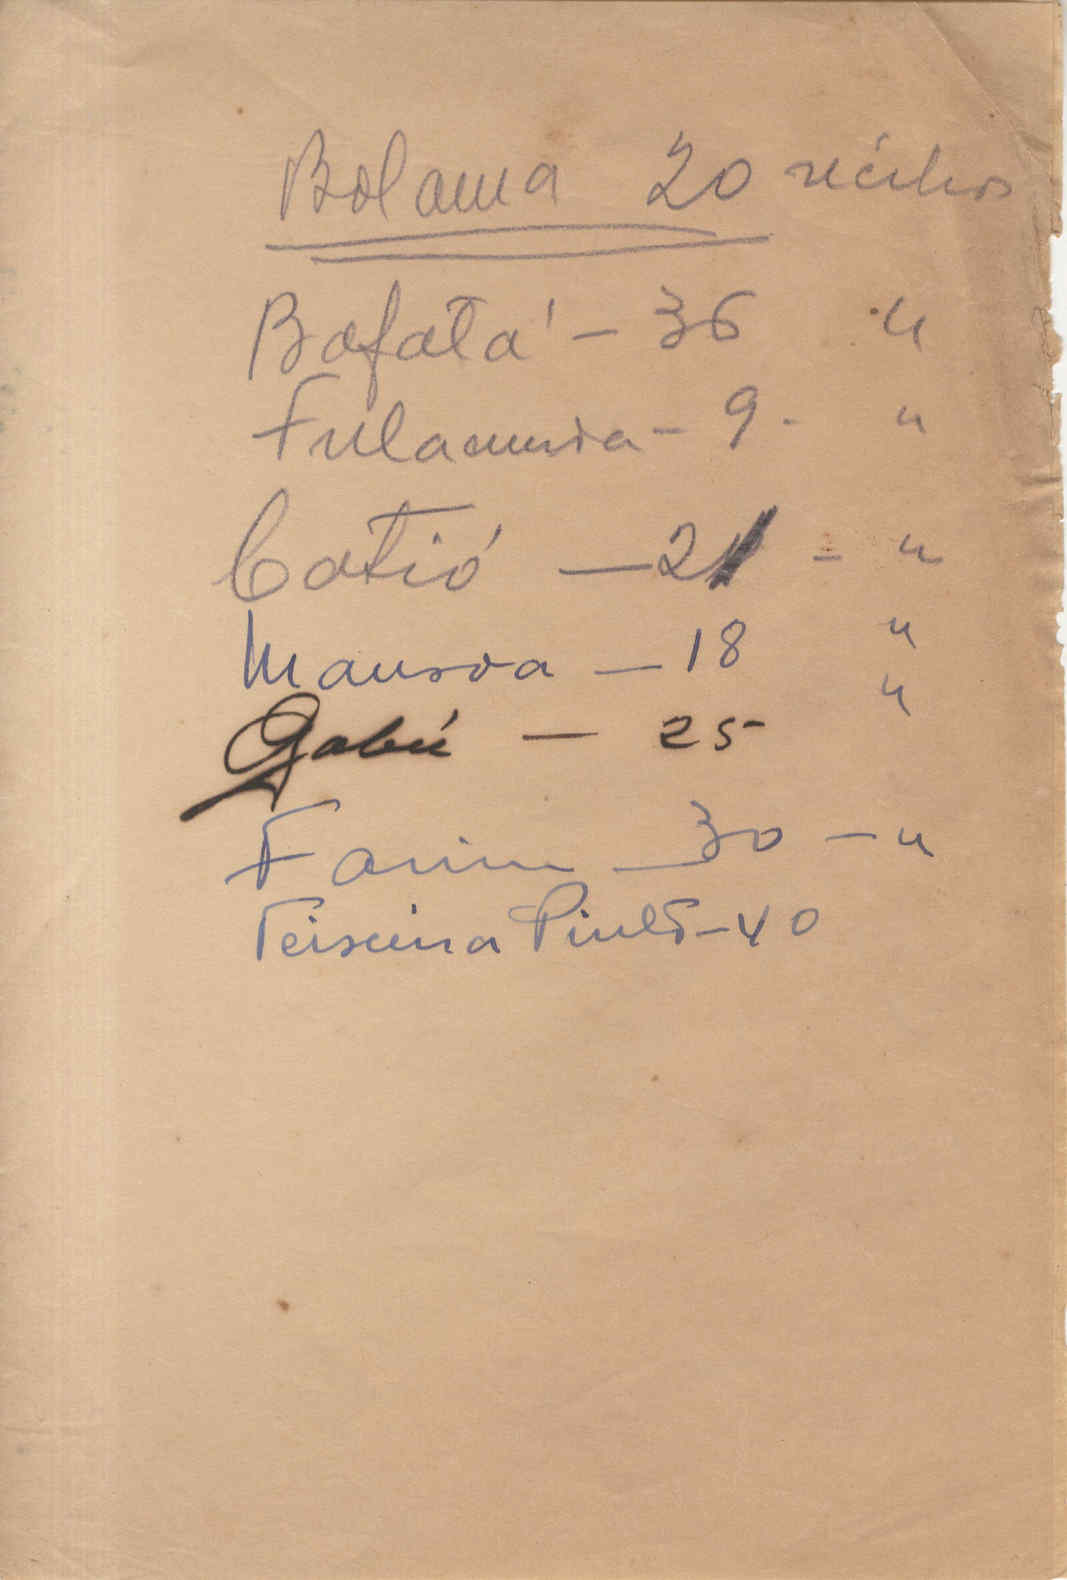 Bolama 20 récibos
Bafatá - 36 "
Fulacunda - 9 - "
Catió - 21 - "
Mansoa - 18 "
Gabú - 25 "
Farim - 30 - "
Teixeira Pinto - 40